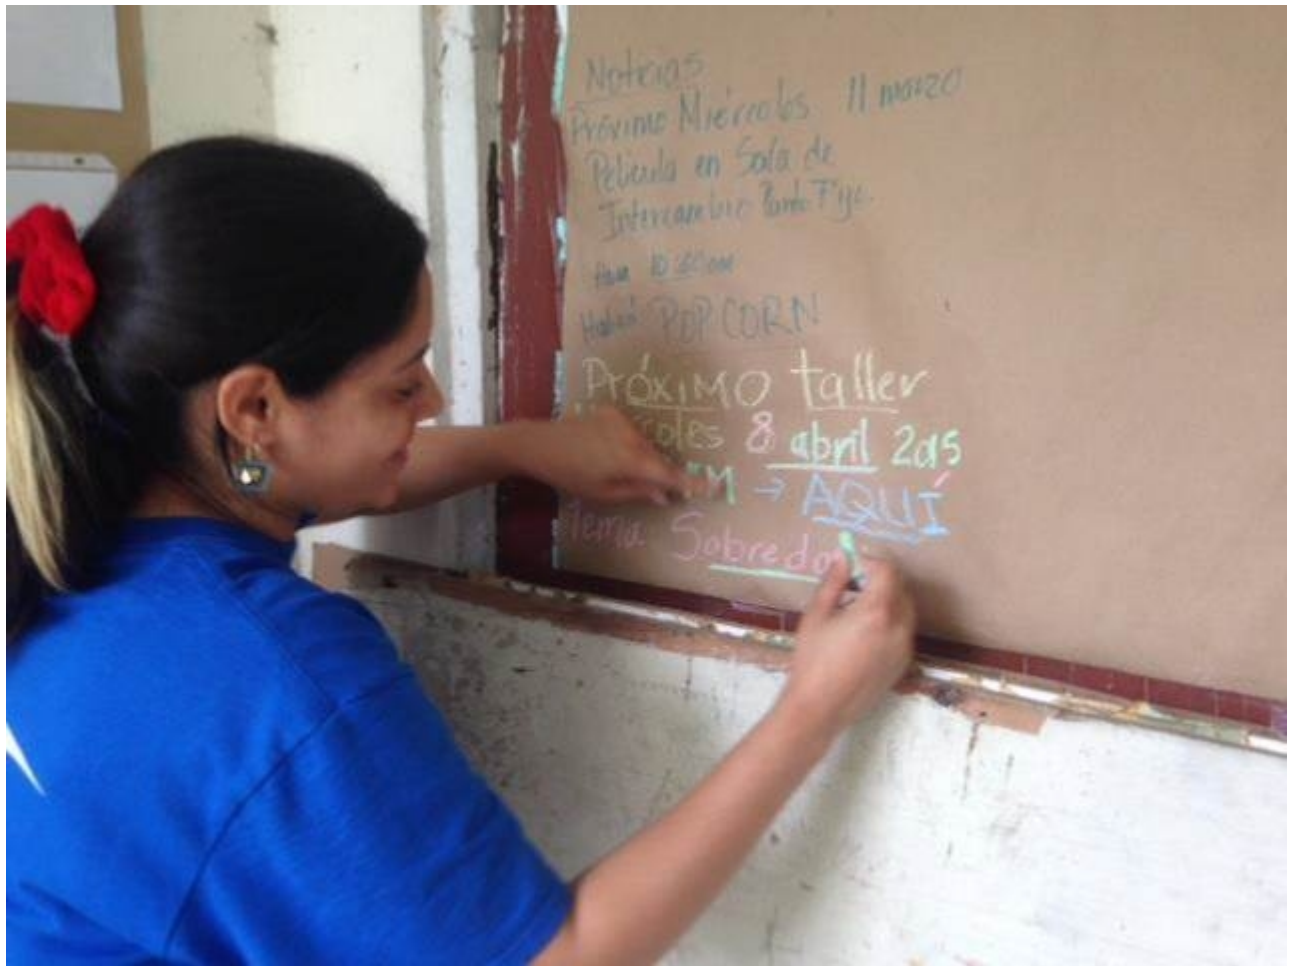 Noticias
Próximo Miércoles 11 marzo
Película en Sala de
Intercambio Punto Fijo
Hora 10:00am
Habrá POP CORN
PróxiMO taller
8 abril 2da5
M → AQUÍ
Tema Sobredo